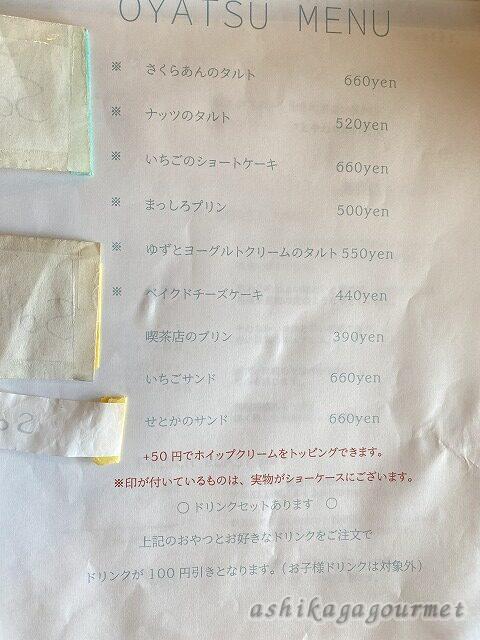 OYATSU MENU
※ さくらあんのタルト 660yen
※ ナッツのタルト 520yen
※ いちごのショートケーキ 660yen
※ まっしろプリン 500yen
※ ゆずとヨーグルトクリームのタルト 550yen
※ ベイクドチーズケーキ 440yen
喫茶店のプリン 390yen
いちごサンド 660yen
せとかのサンド 660yen
+50 円でホイップクリームをトッピングできます。
※印が付いているものは、実物がショーケースにございます。
〇 ドリンクセットあります 〇
上記のおやつとお好きなドリンクをご注文で
ドリンクが 100 円引きとなります。(お子様ドリンクは対象外)
ashikagagourmet